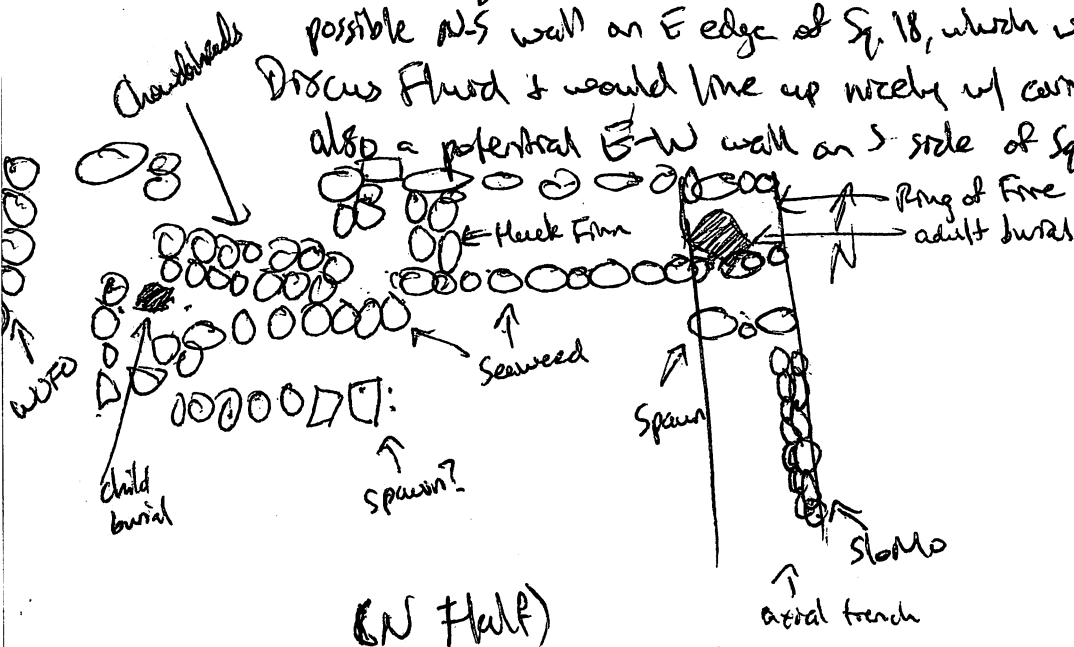 possible N-S wall on E edge of Sq. 18, which
Discus Fluid & would line up nicely w/
also a potential E-W wall on S side of Sq
Chowderheads
Ring of Fire
adult burial
N
Huck Finn
WOFO
Seaweed
Spawn
child
burial
Spawn?
SloMo
axial trench
(N Half)